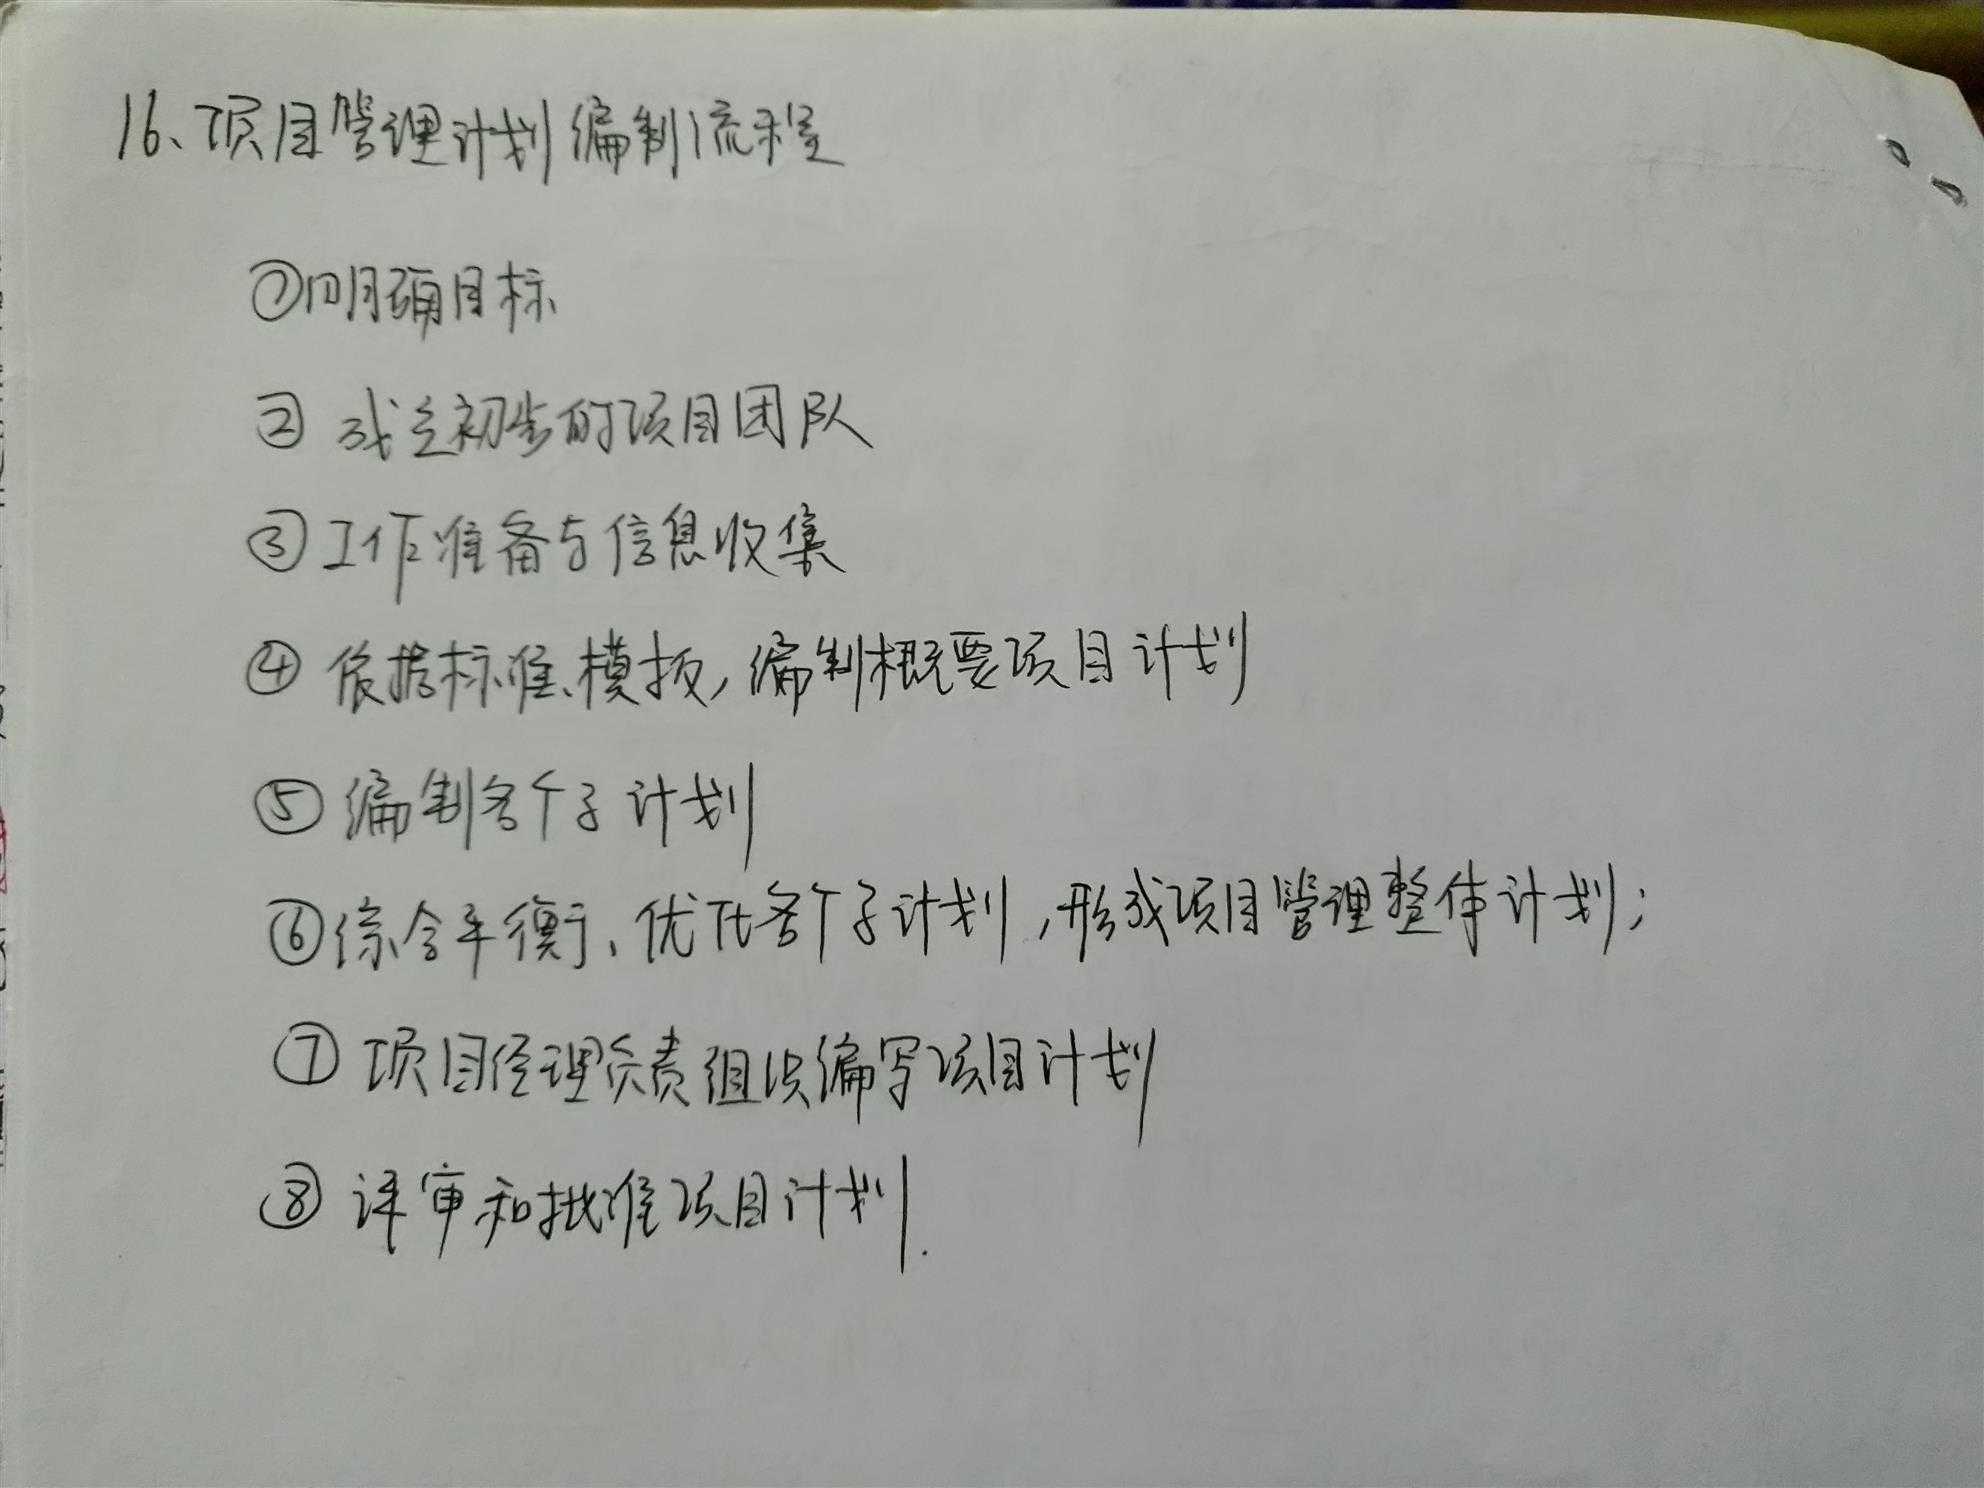 16、项目管理计划编制流程
①明确目标
② 成立初步的项目团队
③ 工作准备与信息收集
④ 依据标准、模板,编制概要项目计划
⑤ 编制各个子计划
⑥综合平衡、优化各个子计划,形成项目管理整体计划;
⑦ 项目经理负责组织编写项目计划
⑧ 评审和批准项目计划.